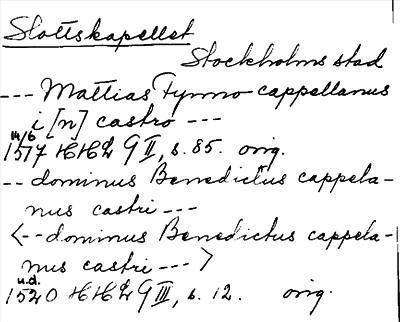 Slottskapellet
Stockholms stad
--- Mattias Fynno cappellanus
i [n] castro ---
14/6
1517 HH
-- dominus Benedictus cappela-
nus castri ---
<-- dominus Benedictus cappela-
nus castri --- >
u.d.
1520 HH